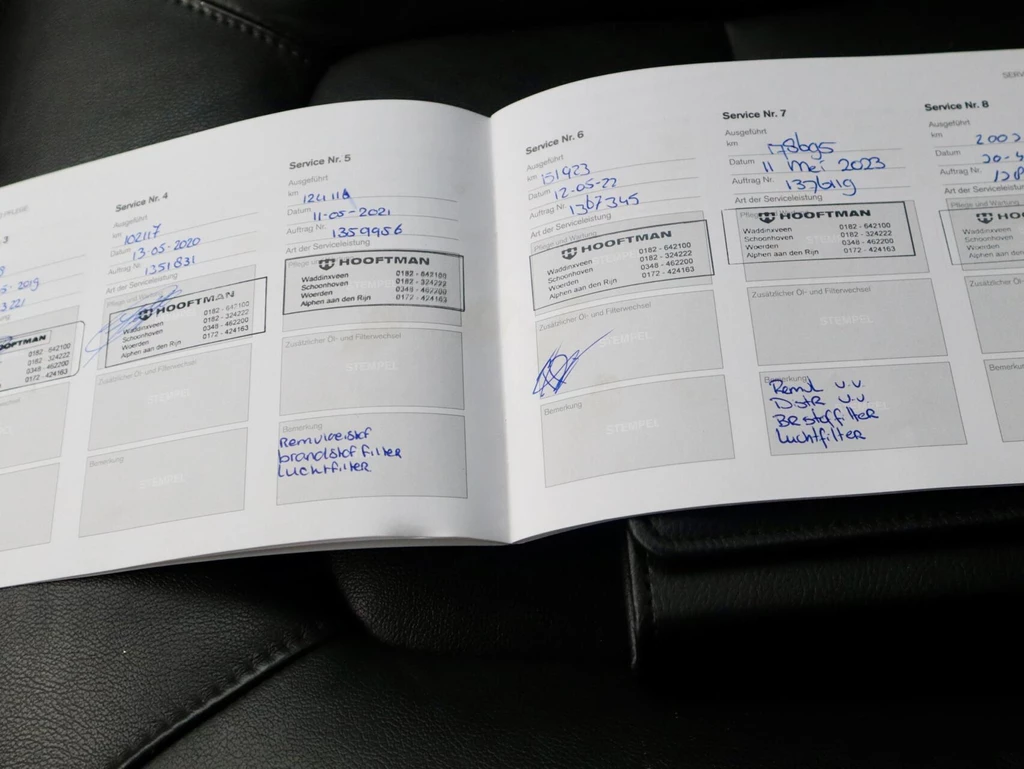 3
HOOFTMAN
0182 - 642100
0182 - 324222
0348 - 462200
0172 - 424163
Service Nr. 4
Ausgeführt
km 102117
Datum 13-05-2020
Auftrag Nr. 1351831
Art der Serviceleistung
Pflege und Wartung
HOOFTMAN
Waddinxveen 0182 - 642100
Schoonhoven 0182 - 324222
Woerden 0348 - 462200
Alphen aan den Rijn 0172 - 424163
STEMPEL
Zusätzlicher Öl- und Filterwechsel
STEMPEL
Bemerkung
STEMPEL
Service Nr. 5
Ausgeführt
km
Datum 11-05-2021
Auftrag Nr. 1359956
Art der Serviceleistung
HOOFTMAN
Waddinxveen 0182 - 642100
Schoonhoven 0182 - 324222
Woerden 0348 - 462200
Alphen aan den Rijn 0172 - 424163
Zusätzlicher Öl- und Filterwechsel
STEMPEL
Bemerkung
Remvloeistof
brandstof filter
Luchtfilter
Service Nr. 6
Ausgeführt
km 151923
Datum 12-05-22
Auftrag Nr. 1367345
Art der Serviceleistung
Pflege und Wartung
HOOFTMAN
Waddinxveen 0182 - 642100
Schoonhoven 0182 - 324222
Woerden 0348 - 462200
Alphen aan den Rijn 0172 - 424163
Zusätzlicher Öl- und Filterwechsel
Bemerkung
STEMPEL
Service Nr. 7
Ausgeführt
km
Datum 11 mei 2023
Auftrag Nr.
Art der Serviceleistung
HOOFTMAN
Waddinxveen 0182 - 642100
Schoonhoven 0182 - 324222
Woerden 0348 - 462200
Alphen aan den Rijn 0172 - 424163
Zusätzlicher Öl- und Filterwechsel
STEMPEL
Bemerkung
Remvl v.v.
Distr v.v.
Brstoffilter
Luchtfilter
SERV
Service Nr. 8
Ausgeführt
km
Datum
Auftrag Nr.
Art der Serviceleistung
Pflege und Wartung
Waddinxveen
Schoonhoven
Woerden
Alphen aan den Rijn
Zusätzlicher Öl- und
Bemerkung